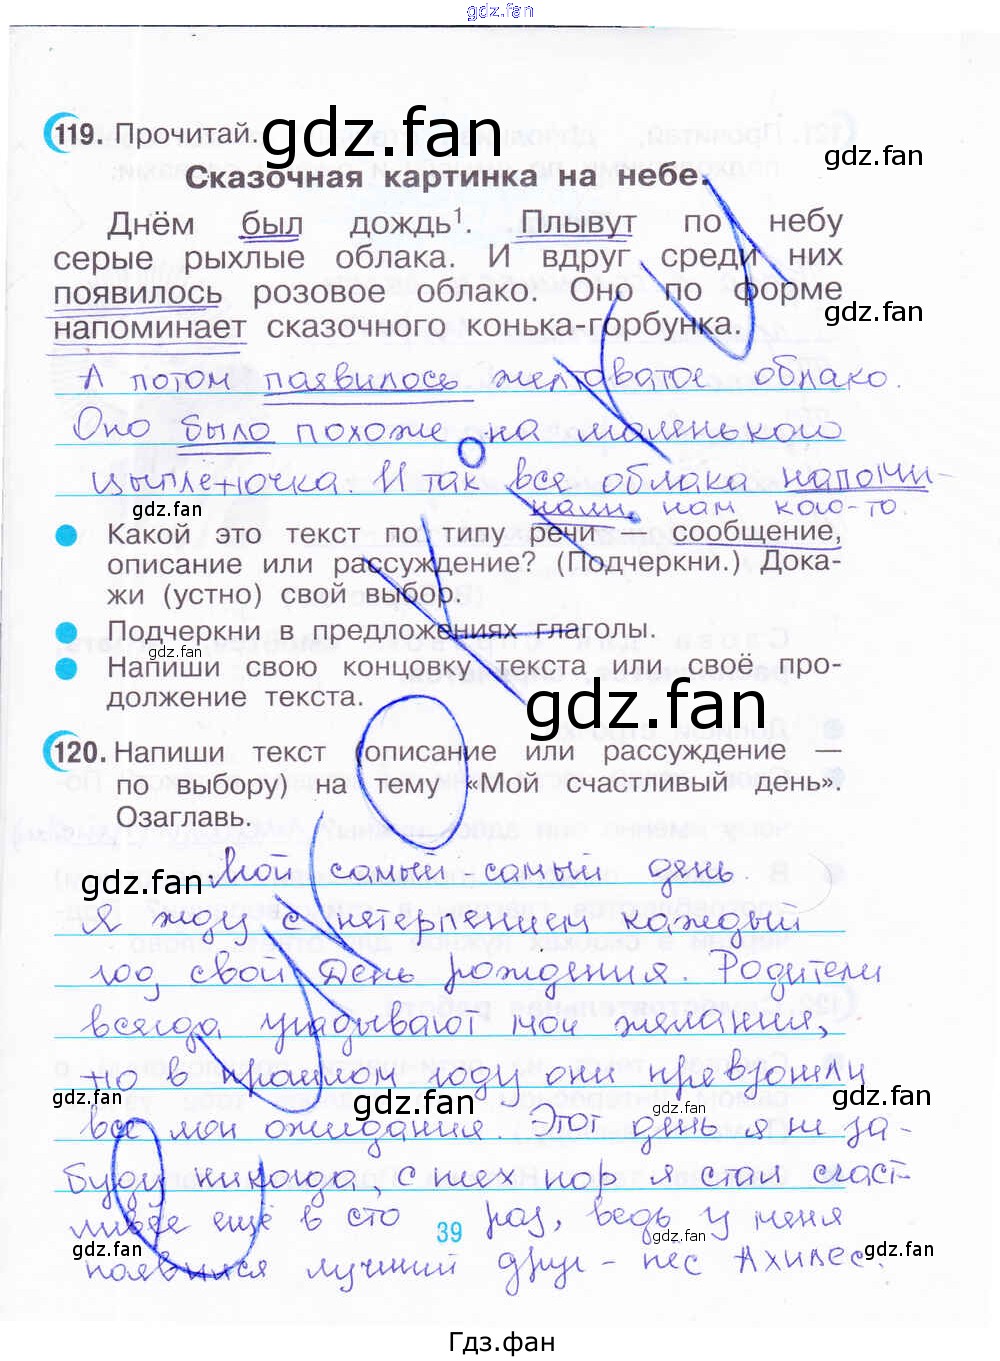 gdz.fan
119. Прочитай.
gdz.fan
gdz.fan
Сказочная картинка на небе.
Днём был дождь¹. Плывут по небу
серые рыхлые облака. И вдруг среди них
появилось розовое облако. Оно по форме
gdz.fan
напоминает сказочного конька-горбунка.
А потом появилось желтоватое облако.
Оно было похоже на маленького
цыплёночка. И так все облака напоми-
нали нам кого-то.
gdz.fan
Какой это текст по типу речи – сообщение,
описание или рассуждение? (Подчеркни.) Дока-
жи (устно) свой выбор.
Подчеркни в предложениях глаголы.
gdz.fan
Напиши свою концовку текста или своё про-
должение текста.
gdz.fan
120. Напиши текст (описание или рассуждение —
по выбору) на тему «Мой счастливый день».
Озаглавь.
Мой самый самый день.
gdz.fan
Я жду с нетерпением каждый
год свой День рождения. Родители
всегда угадывают мои желания,
но в прошлом году они превзошли
gdz.fan
gdz.fan
gdz.fan
все мои ожидания. Этот день я не за-
буду никогда, с тех пор я стал счаст-
ливее ещё в сто раз, ведь у меня
39
gdz.fan
gdz.fan
gdz.fan
gdz.fan
появился лучший друг – пёс Ахилес.
Гдз.фан